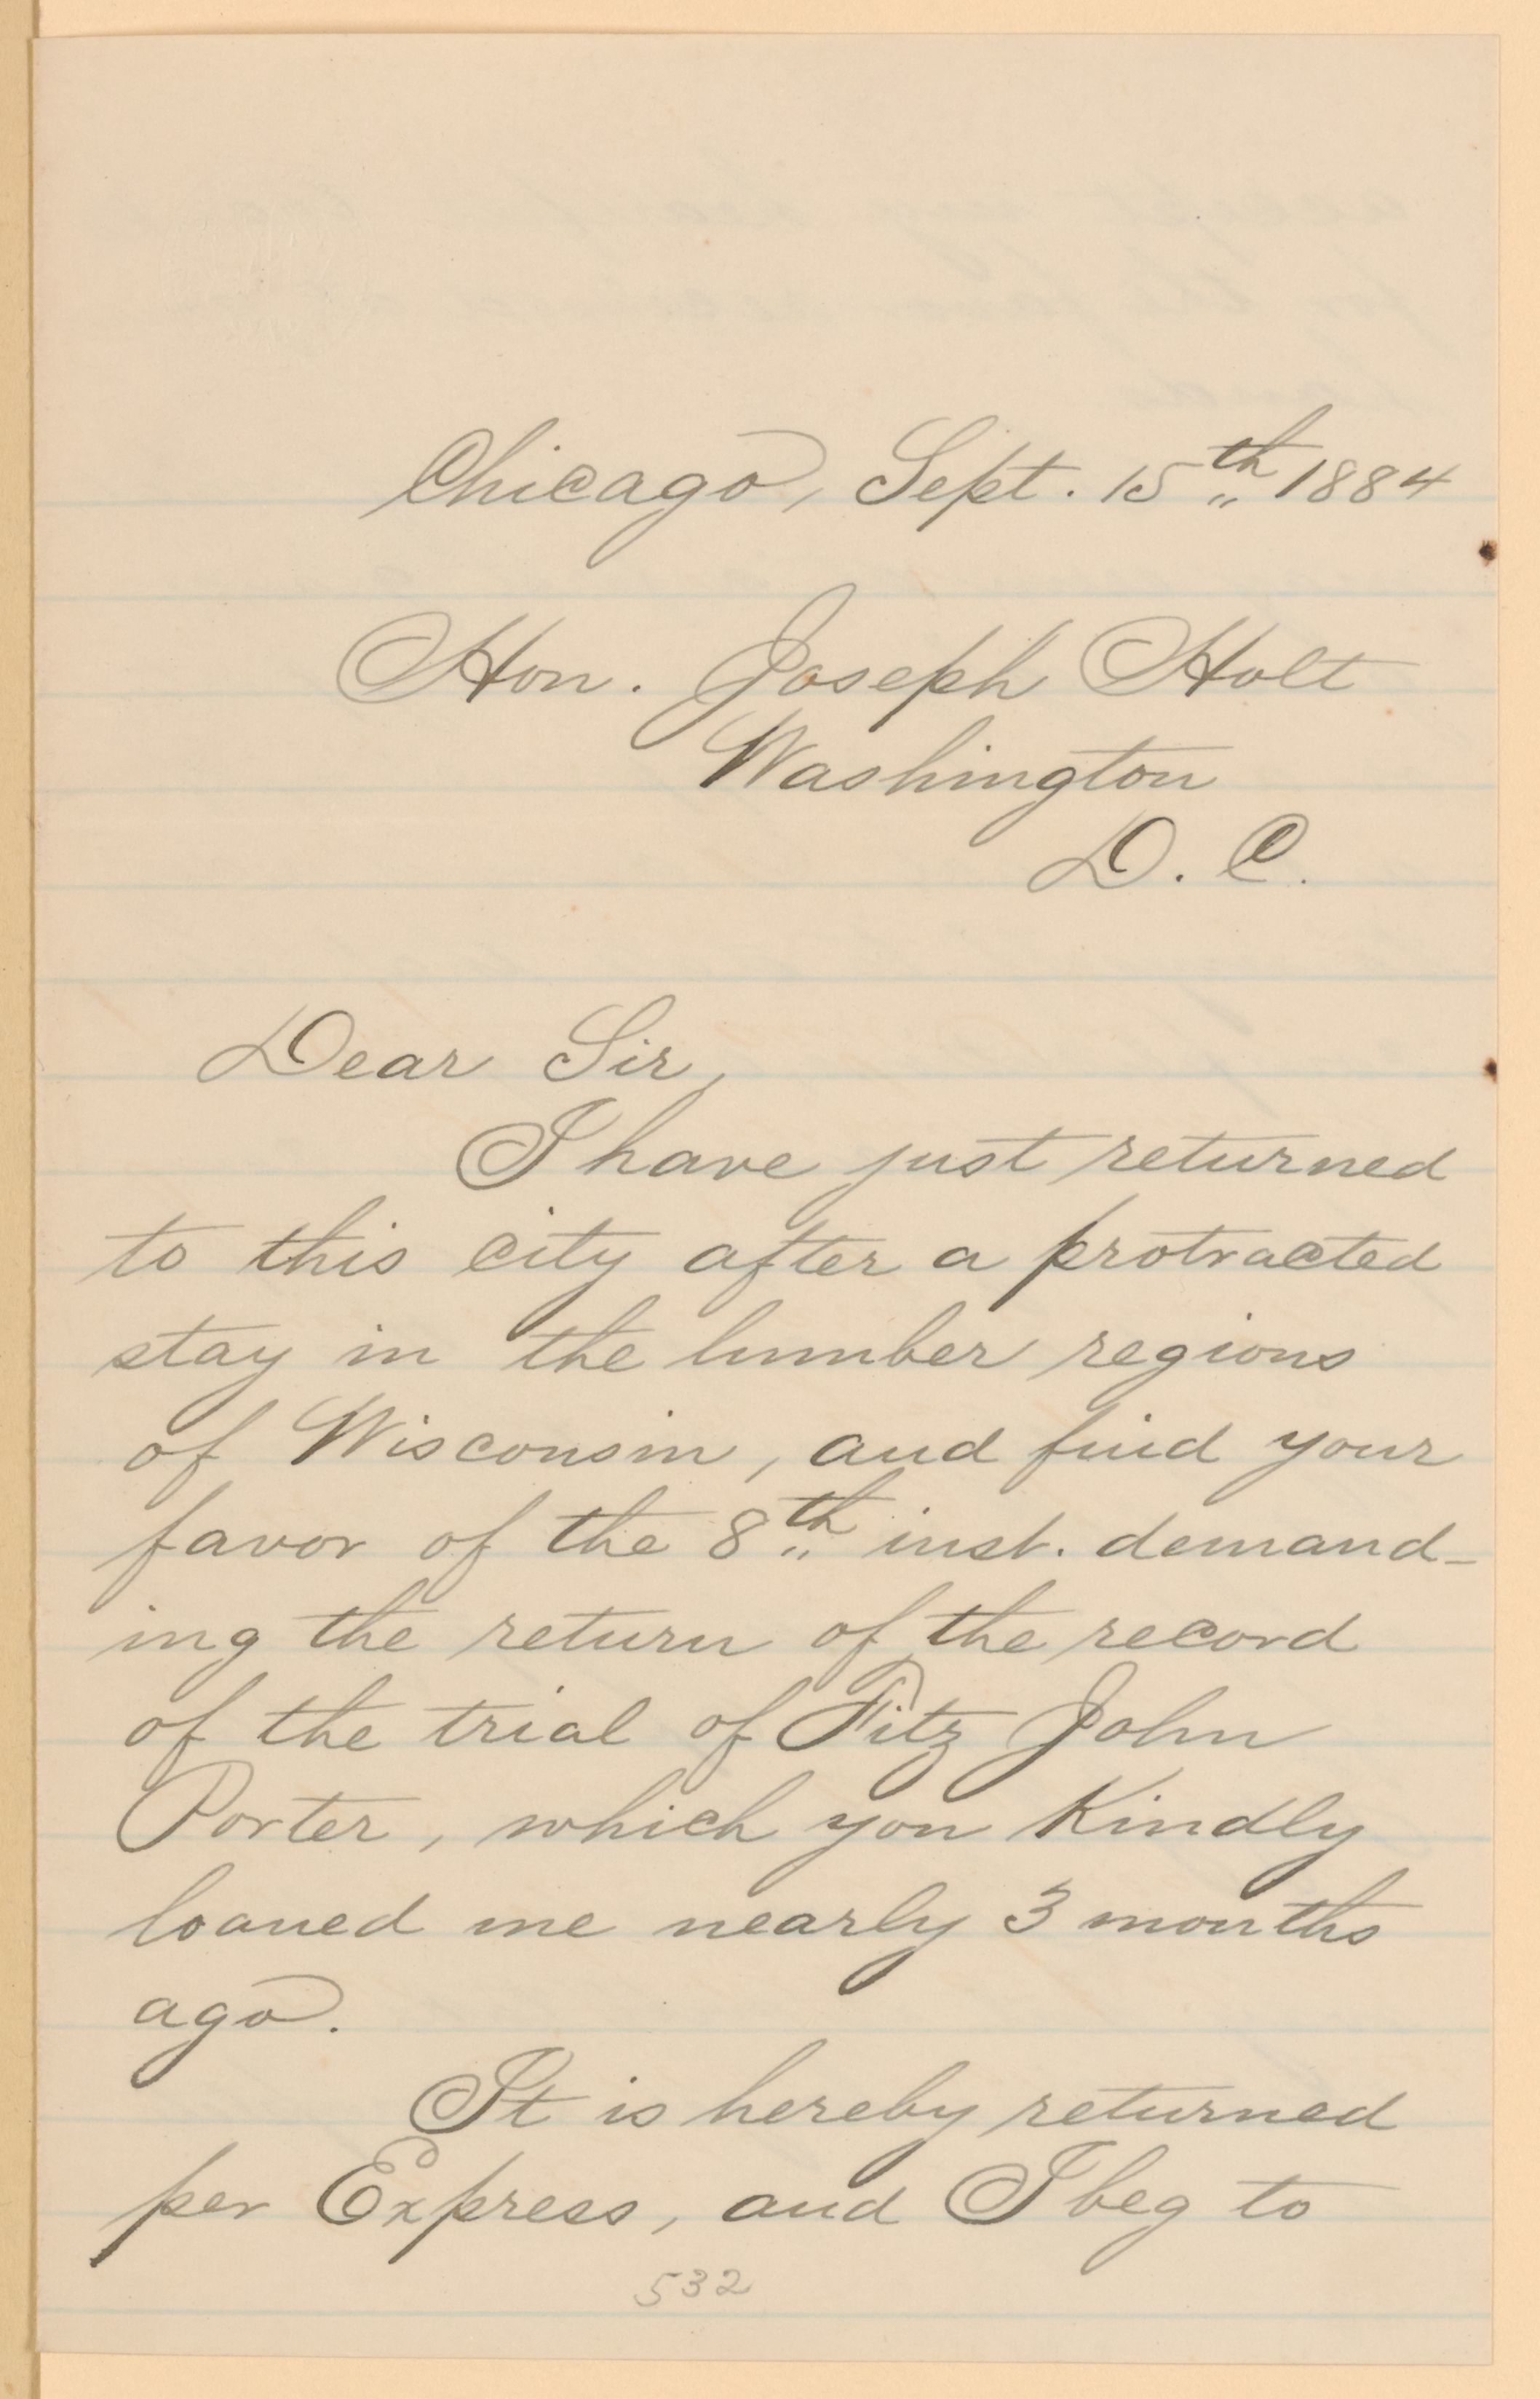 Chicago, Sept. 15th 1884
Hon. Joseph Holt
Washington
D. C.
Dear Sir,
I have just returned
to this city after a protracted
stay in the lumber regions
of Wisconsin, and find your
favor of the 8th inst. demand-
ing the return of the record
of the trial of Fitz John
Porter, which you kindly
loaned me nearly 3 months
ago.
It is hereby returned
per Express, and I beg to
532